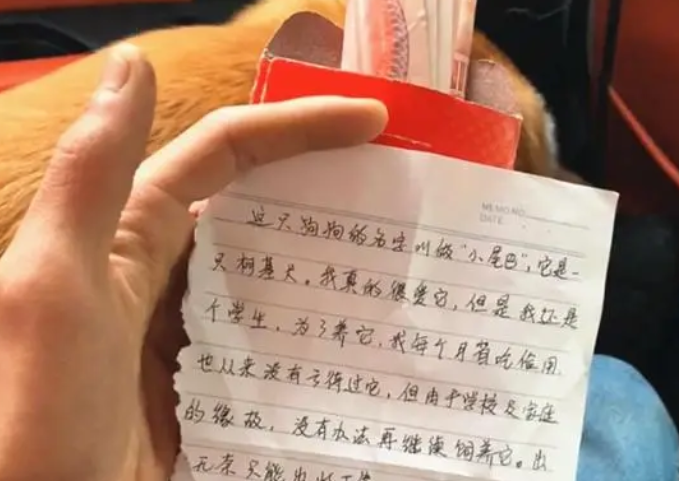 MEMO NO.
DATE
这只狗狗的名字叫做“小尾巴”，它是一
只柯基犬。我真的很爱它，但是我还是
个学生，为了养它，我每个月省吃俭用
也从来没有亏待过它，但由于学校及家庭
的缘故，没有办法再继续饲养它。出
无奈只能出此下策